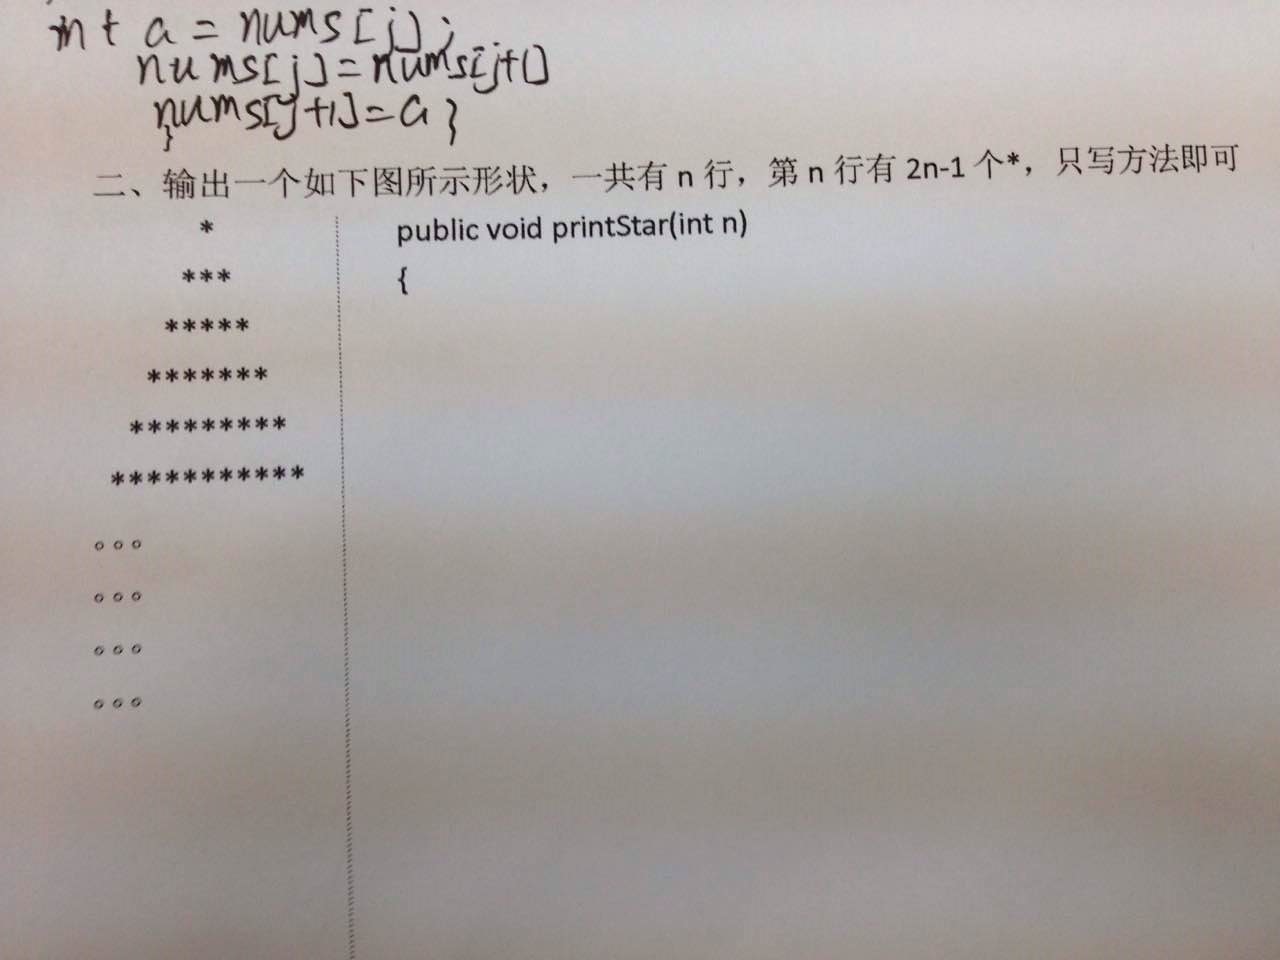 int a = nums[j];
nums[j]=nums[j+1]
nums[j+1]=a }
}
二、输出一个如下图所示形状，一共有 n 行，第 n 行有 2n-1 个*，只写方法即可
* public void printStar(int n)
*** {
*****
*******
*********
***********
。。。
。。。
。。。
。。。